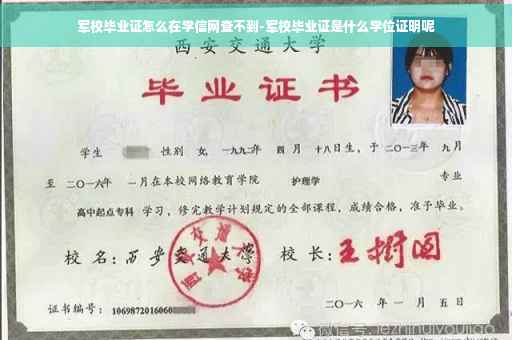 军校毕业证怎么在学信网查不到-军校毕业证是什么学位证明呢
西安交通大学
毕业证书
学生 性别 女, 一九九二年 四 月 十八日生, 于 二〇一三年 九月
至 二〇一六年 一月在本校网络教育学院 护理学 专业
高中起点专科 学习, 修完教学计划规定的全部课程, 成绩合格, 准予毕业。
校 名: 西安交通大学 校 长: 王树国
西安交通大学
证书编号: 1069872016060
二〇一六 年 一 月 五 日
微信号: jiezhinuiyoujiao